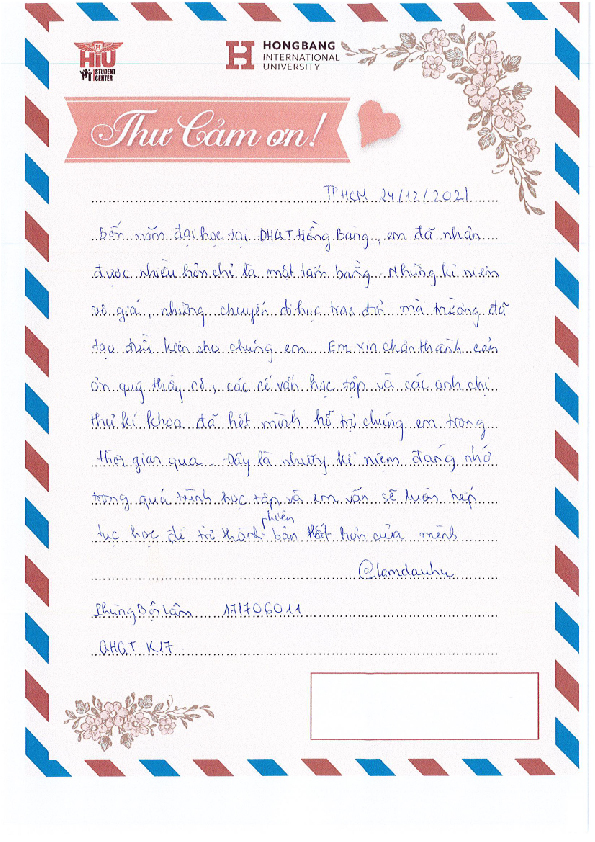 HIU
STUDENT
CENTER
HONGBANG
INTERNATIONAL
UNIVERSITY
Thư Cảm ơn!
TPHCM 24/12/2021
Bốn năm đại học tại ĐHQT Hồng Bàng, em đã nhận
được nhiều hơn chỉ là một tấm bằng. Những kỉ niệm
vô giá, những chuyến đi học trao đổi mà trường đã
tạo điều kiện cho chúng em. Em xin chân thành cảm
ơn quý thầy cô, các cố vấn học tập và các anh chị
thư kí khoa đã hết mình hỗ trợ chúng em trong
thời gian qua. Đây là những kỉ niệm đáng nhớ
trong quá trình học tập và em vẫn sẽ luôn tiếp
tục học để trở thành phiên bản tốt hơn của mình
@lamdauhu
Phùng Bội Lâm 171706011
QHQT K17